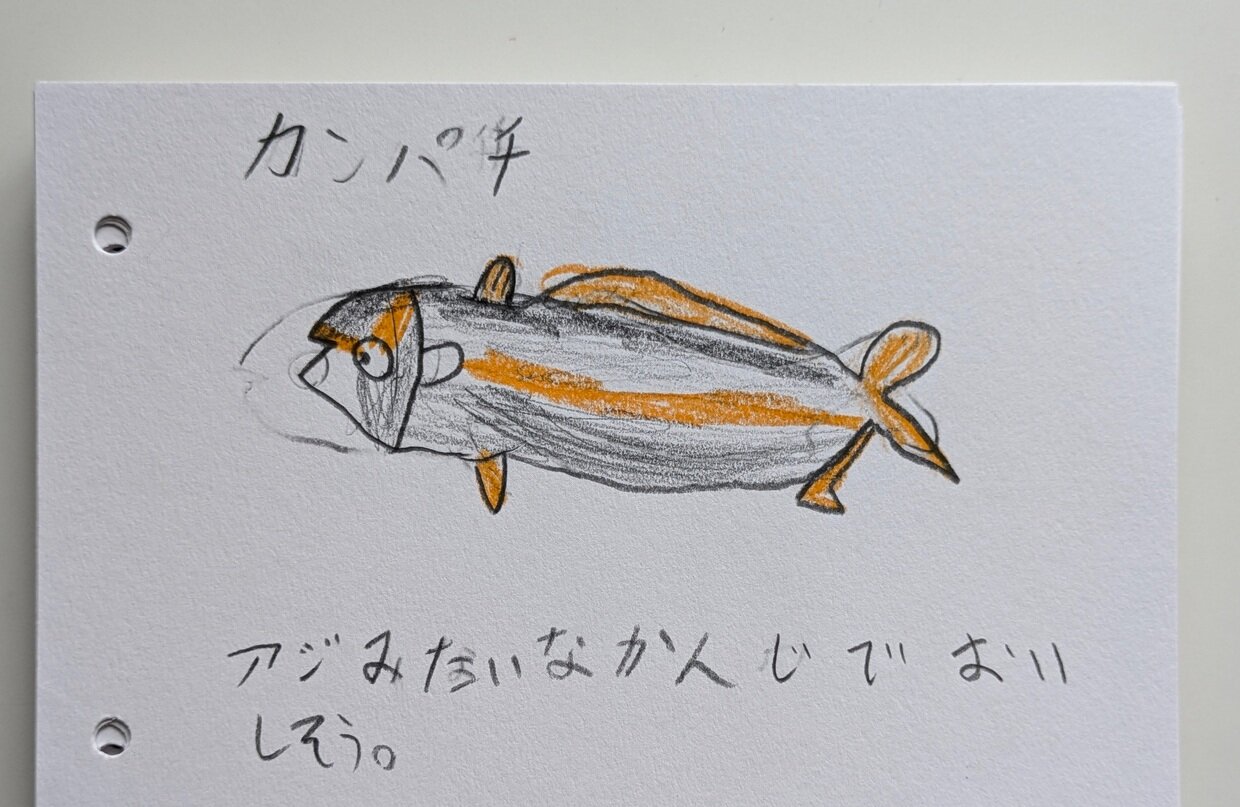 カンパチ
アジみたいなかんじでおい
しそう。